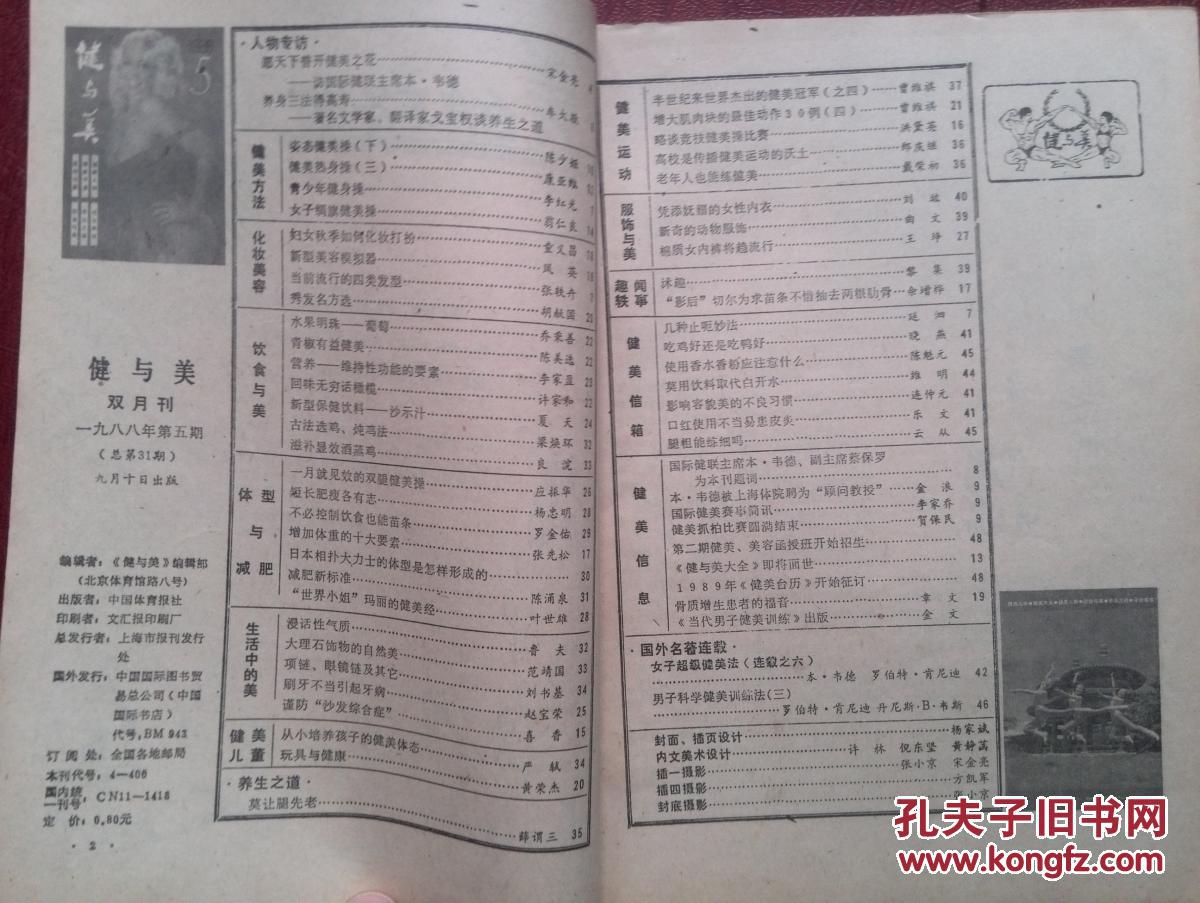 健与美
5
健与美
双月刊
一九八八年第五期
(总第31期)
九月十日出版
编辑者:《健与美》编辑部
(北京体育馆路八号)
出版者:中国体育报社
印刷者:文汇报印刷厂
总发行者:上海市报刊发行
处
国外发行:中国国际图书贸
易总公司(中国
国际书店)
代号,BM 943
订阅处:全国各地邮局
本刊代号:4—406
国内统一刊号:CN11—1418
定价:0.80元
·2·
·人物专访·
愿天下普开健美之花
——访国际健联主席本·韦德 宋金亮
养身三法得高寿
——著名文学家、翻译家戈宝权谈养生之道
健美方法
姿态健美操(下) 陈少娅
健美热身操(三) 康亚维
青少年健身操 李红光
女子绸旗健美操 翁仁良 14
化妆美容
妇女秋季如何化妆打扮 童义昌
新型美容模拟器 凤英
当前流行的四类发型 张轶卉
秀发名方选 胡献国 20
饮食与美
水果明珠——葡萄 乔秉善 22
青椒有益健美 陈美选 22
营养——维持性功能的要素 李家显 23
回味无穷话橄榄 许家和 22
新型保健饮料——沙示汁 夏天 24
古法选鸡、炖鸡法 梁焕环 32
滋补显效酒蒸鸡 良淀 33
体型与减肥
一月就见效的双腿健美操 应振华 26
短长肥瘦各有志 杨忠明 28
不必控制饮食也能苗条 罗金佑 29
增加体重的十大要素 张先松 17
日本相扑大力士的体型是怎样形成的 30
减肥新标准 陈涌泉 31
“世界小姐”玛丽的健美经 叶世雄 28
生活中的美
漫话性气质 鲁夫 32
大理石饰物的自然美 范靖国 33
项链、眼镜链及其它 刘书基 34
刷牙不当引起牙病 赵宝荣 25
谨防“沙发综合症” 喜香 15
健美儿童
从小培养孩子的健美体态 严轼 34
玩具与健康 黄荣杰 20
·养生之道·
莫让腿先老 薛谓三 35
健美运动
半世纪来世界杰出的健美冠军(之四) 曹维祺 37
增大肌肉块的最佳动作30例(四) 曹维祺 21
略谈竞技健美操比赛 洪黛英 16
高校是传播健美运动的沃土 郎庆继 36
老年人也能练健美 戴荣初 36
服饰与美
凭添妩媚的女性内衣 刘竑 40
新奇的动物服饰 曲文 39
棉质女内裤将趋流行 王琤 27
趣闻轶事
沐趣 黎集 39
“影后”切尔为求苗条不惜抽去两根肋骨 余增桦 17
健美信箱
几种止呃妙法 延泗 7
吃鸡好还是吃鸭好 晓燕 41
使用香水香粉应注意什么 陈魁元 45
莫用饮料取代白开水 维明 44
影响容貌美的不良习惯 连仲元 41
口红使用不当易患皮炎 乐文 41
腿粗能练细吗 云从 45
健美信息
国际健联主席本·韦德、副主席蔡保罗
为本刊题词 8
本·韦德被上海体院聘为“顾问教授” 金浪 9
国际健美赛事简讯 李家乔 9
健美抓拍比赛圆满结束 贺保民 9
第二期健美、美容函授班开始招生 48
《健与美大全》即将面世 13
1989年《健美台历》开始征订 48
骨质增生患者的福音 章文 19
《当代男子健美训练》出版 金文
·国外名著连载·
女子超级健美法(连载之六)
本·韦德 罗伯特·肯尼迪 42
男子科学健美训练法(三)
罗伯特·肯尼迪 丹尼斯·B·韦斯 46
封面、插页设计 杨家斌
内文美术设计 许林 倪东坚 黄静菡
插一摄影 张小京 宋金亮
插四摄影 方凯军
封底摄影 张小京
健与美
孔夫子旧书网
www.kongfz.com